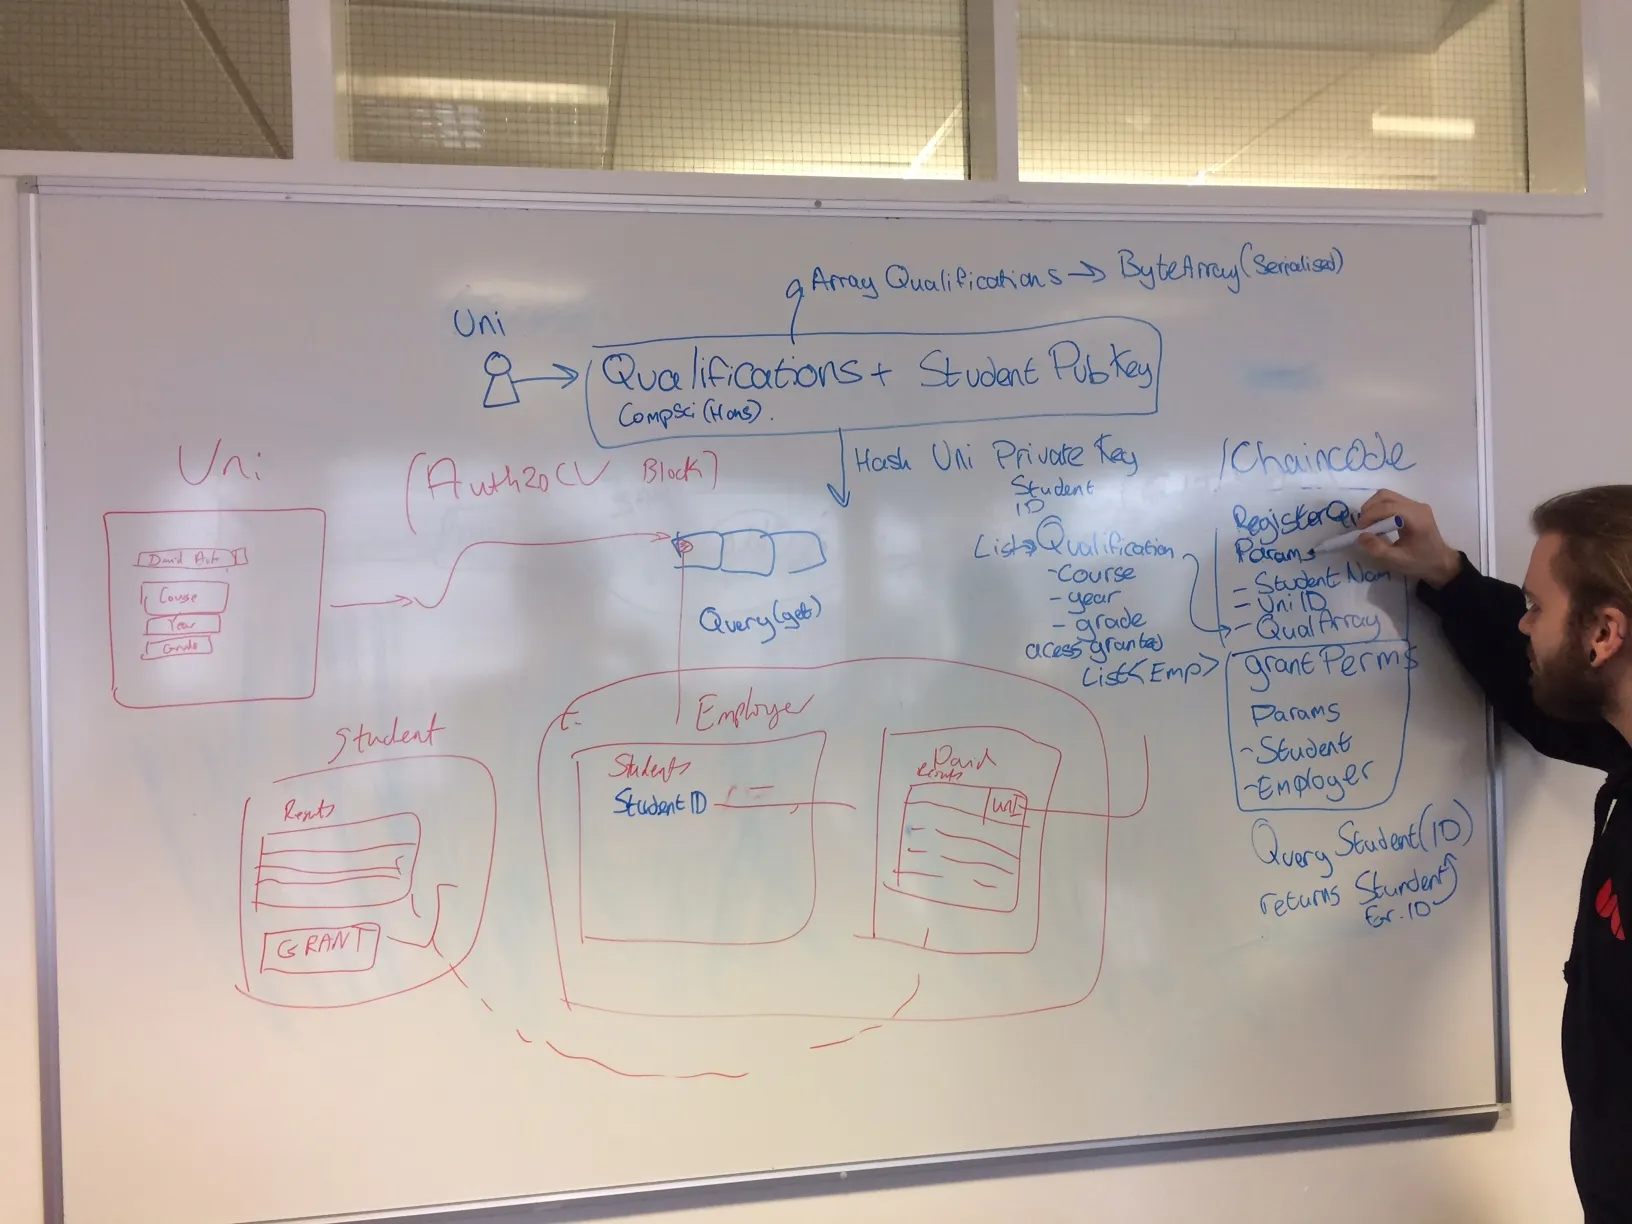 Array Qualifications → ByteArray (Serialised)
Uni
Qualifications + Student PubKey
CompSci (Hons).
Hash Uni Private Key
Uni
(Auth20CV Block)
Course
Year
Grade
Query (get)
Student
ID
List → Qualification
- Course
- year
- grade
acess granted
List<Emp>
/Chaincode
Params
- Student Nam
- Uni ID
- QualArray
grantPerms
Params
- Student
- Employer
Query Student (ID)
returns Stundent
For ID
Student
Results
GRANT
Employer
Students
Student ID
David
Results
UNI